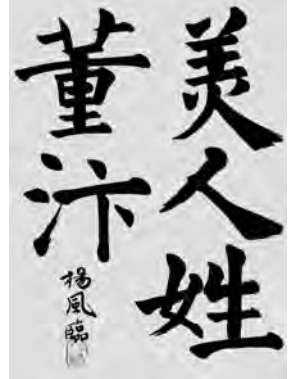 美人姓
董汴
楊風臨